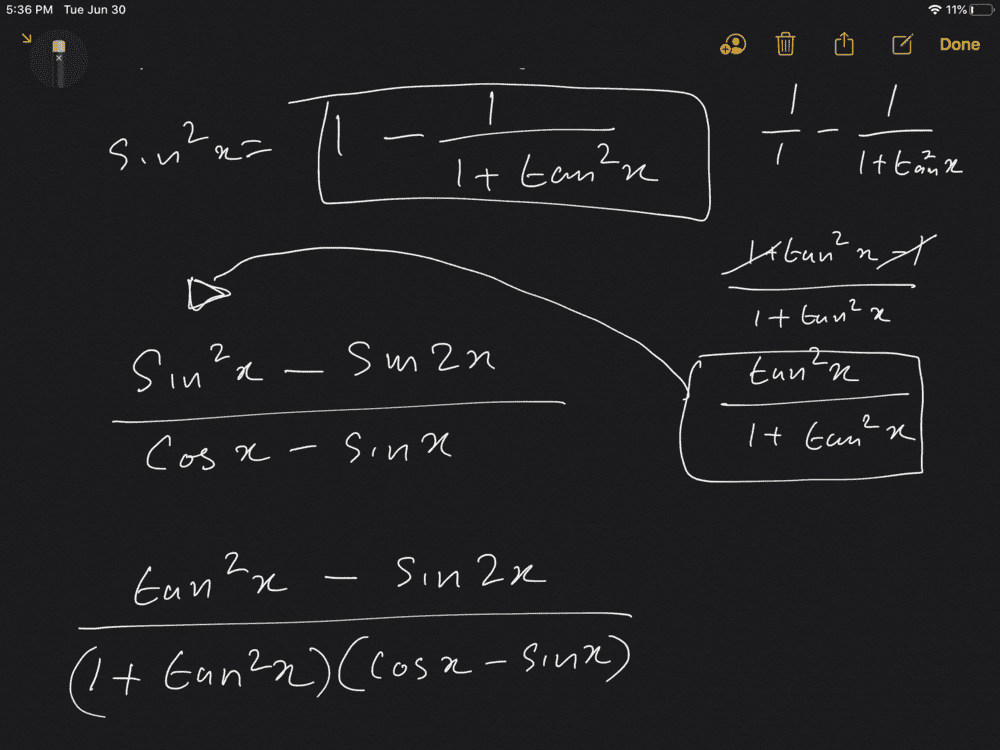 5:36 PM Tue Jun 30 11%
Done
sin²x = 1 - 1/(1 + tan²x)
1/1 - 1/(1 + tan²x)
(1 + tan²x - 1)/(1 + tan²x)
tan²x/(1 + tan²x)
(Sin²x - Sin 2x)/(Cos x - sin x)
(tan²x - Sin 2x)/((1 + tan²x)(cos x - sin x))